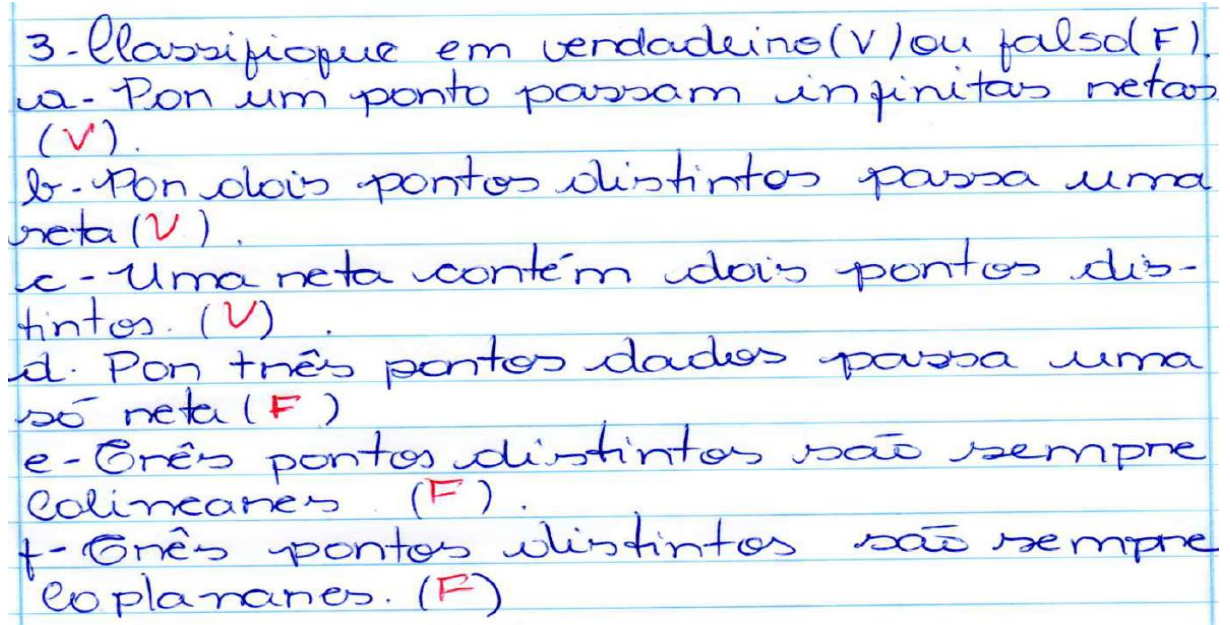 3-Classifique em verdadeiro(V) ou falso(F).
a- Por um ponto passam infinitas retas
(V).
b- Por dois pontos distintos passa uma
reta (V).
c- Uma reta contém dois pontos dis-
tintos. (V).
d. Por três pontos dados passa uma
só reta (F)
e- Três pontos distintos são sempre
colineares (F).
f- Três pontos distintos são sempre
coplanares. (F)